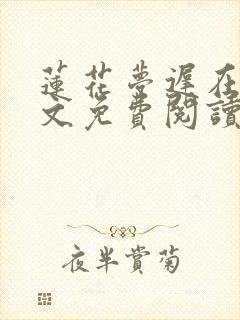 蓮花夢遲在
文免費閱讀
夜半賞菊